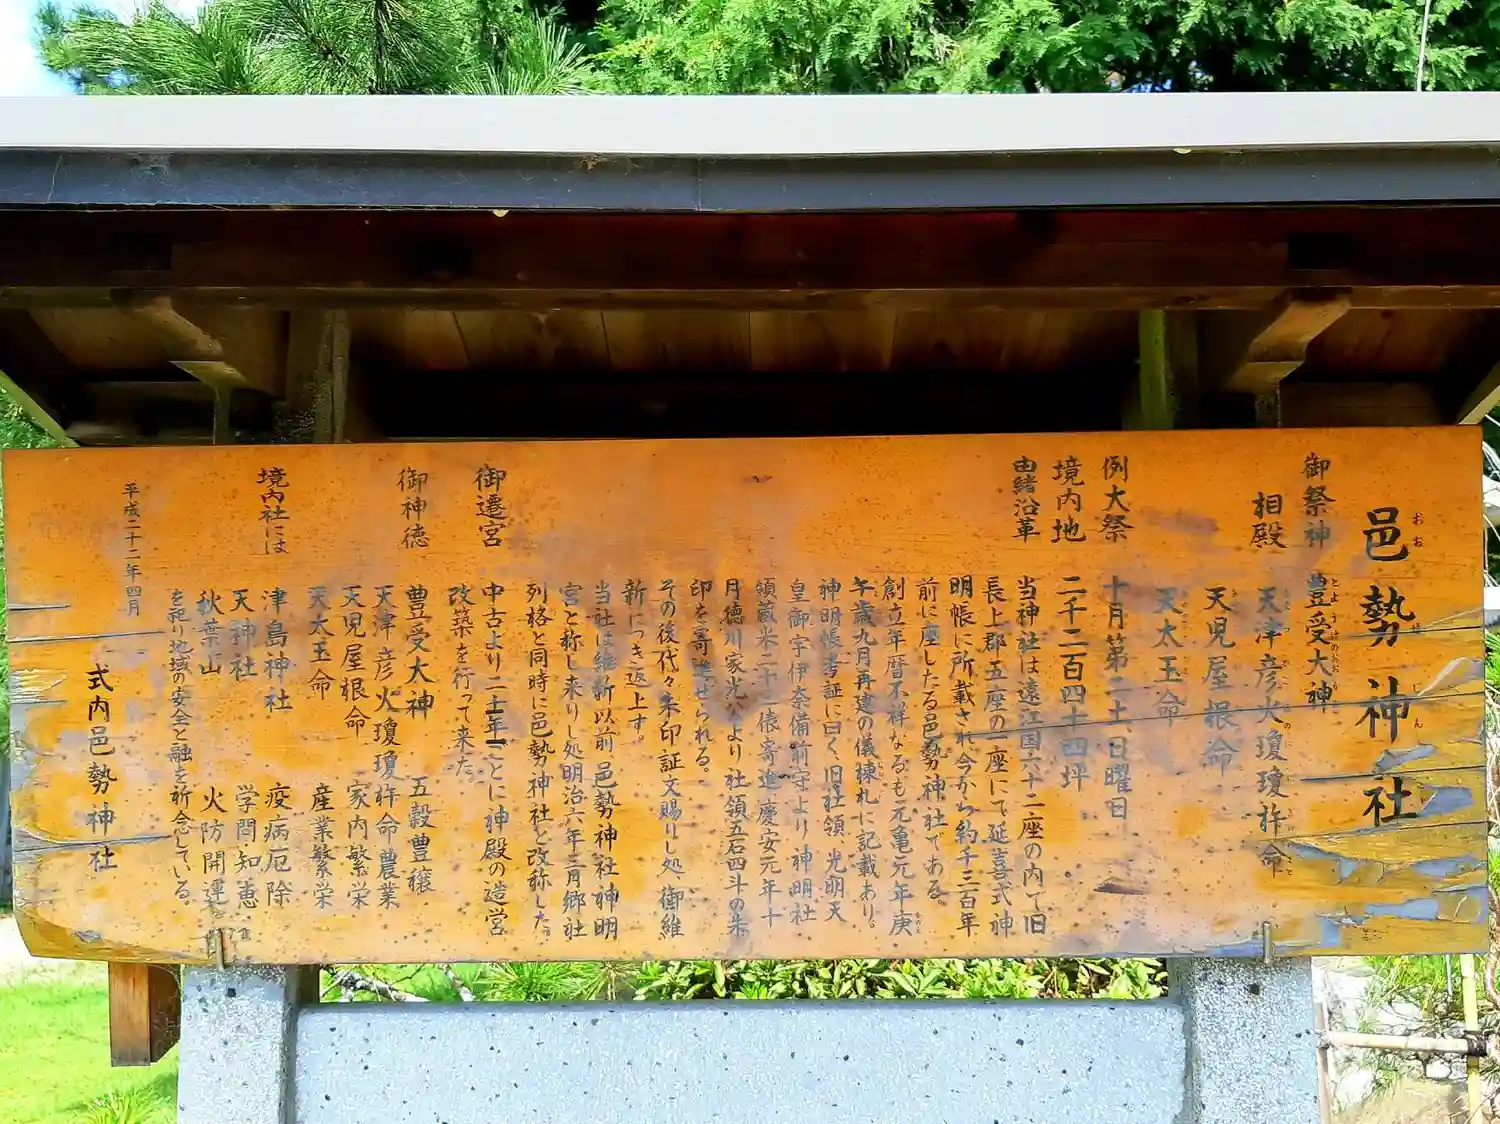 邑勢神社
おおせじんじゃ
御祭神 豊受大神
とようけのおおかみ
相殿 天津彦火瓊瓊杵命
天児屋根命
天太玉命
例大祭 十月第二土、日曜日
境内地 二千二百四十四坪
由緒沿革 当神社は遠江国六十二座の内て旧
長上郡五座の一座にて延喜式神
明帳に所載され今から約千三百年
前に座したる邑勢神社である。
創立年暦不祥なるも元亀元年庚
午歳九月再建の儀棟札に記載あり。
神明帳考証に曰く、旧社領、光明天
皇御宇伊奈備前守より神明社
領蔵米二十二俵寄進慶安元年十
月徳川家光公より社領五石四斗の朱
印を寄進せられる。
その後代々朱印証文賜りし処、御維
新につき返上す。
当社は維新以前邑勢神社神明
宮と称し来りし処明治六年三月郷社
列格と同時に邑勢神社と改称した。
御遷宮 中古より二十年ごとに神殿の造営
改築を行って来た。
御神徳 豊受大神 五穀豊穣
天津彦火瓊瓊杵命 農業
天児屋根命 家内繁栄
天太玉命 産業繁栄
境内社には 津島神社 疫病厄除
天神社 学問知恵
秋葉山 火防開運
を祀り地域の安全と融を祈念している。
平成二十二年四月
式内邑勢神社